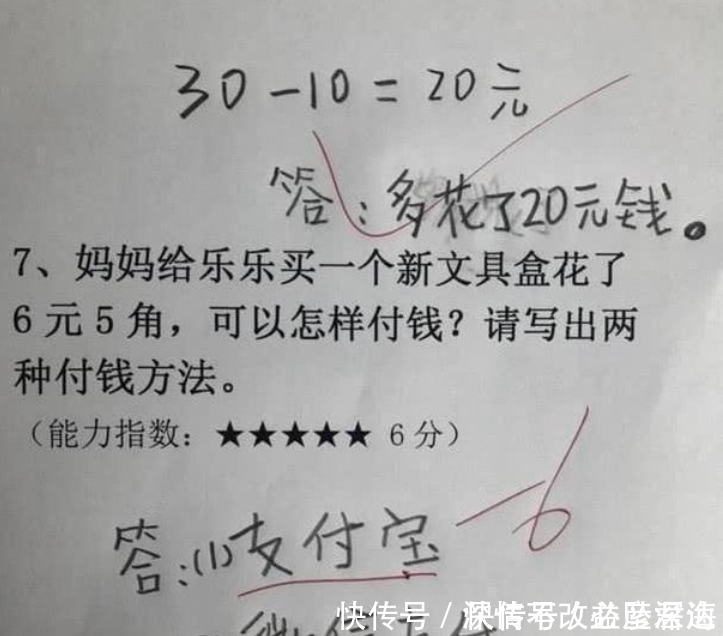 30-10=20元
答：多花了20元钱。
7、妈妈给乐乐买一个新文具盒花了
6元5角，可以怎样付钱？请写出两
种付钱方法。
（能力指数：★★★★★ 6分）
答：(1)支付宝 -6
微信
快传号/